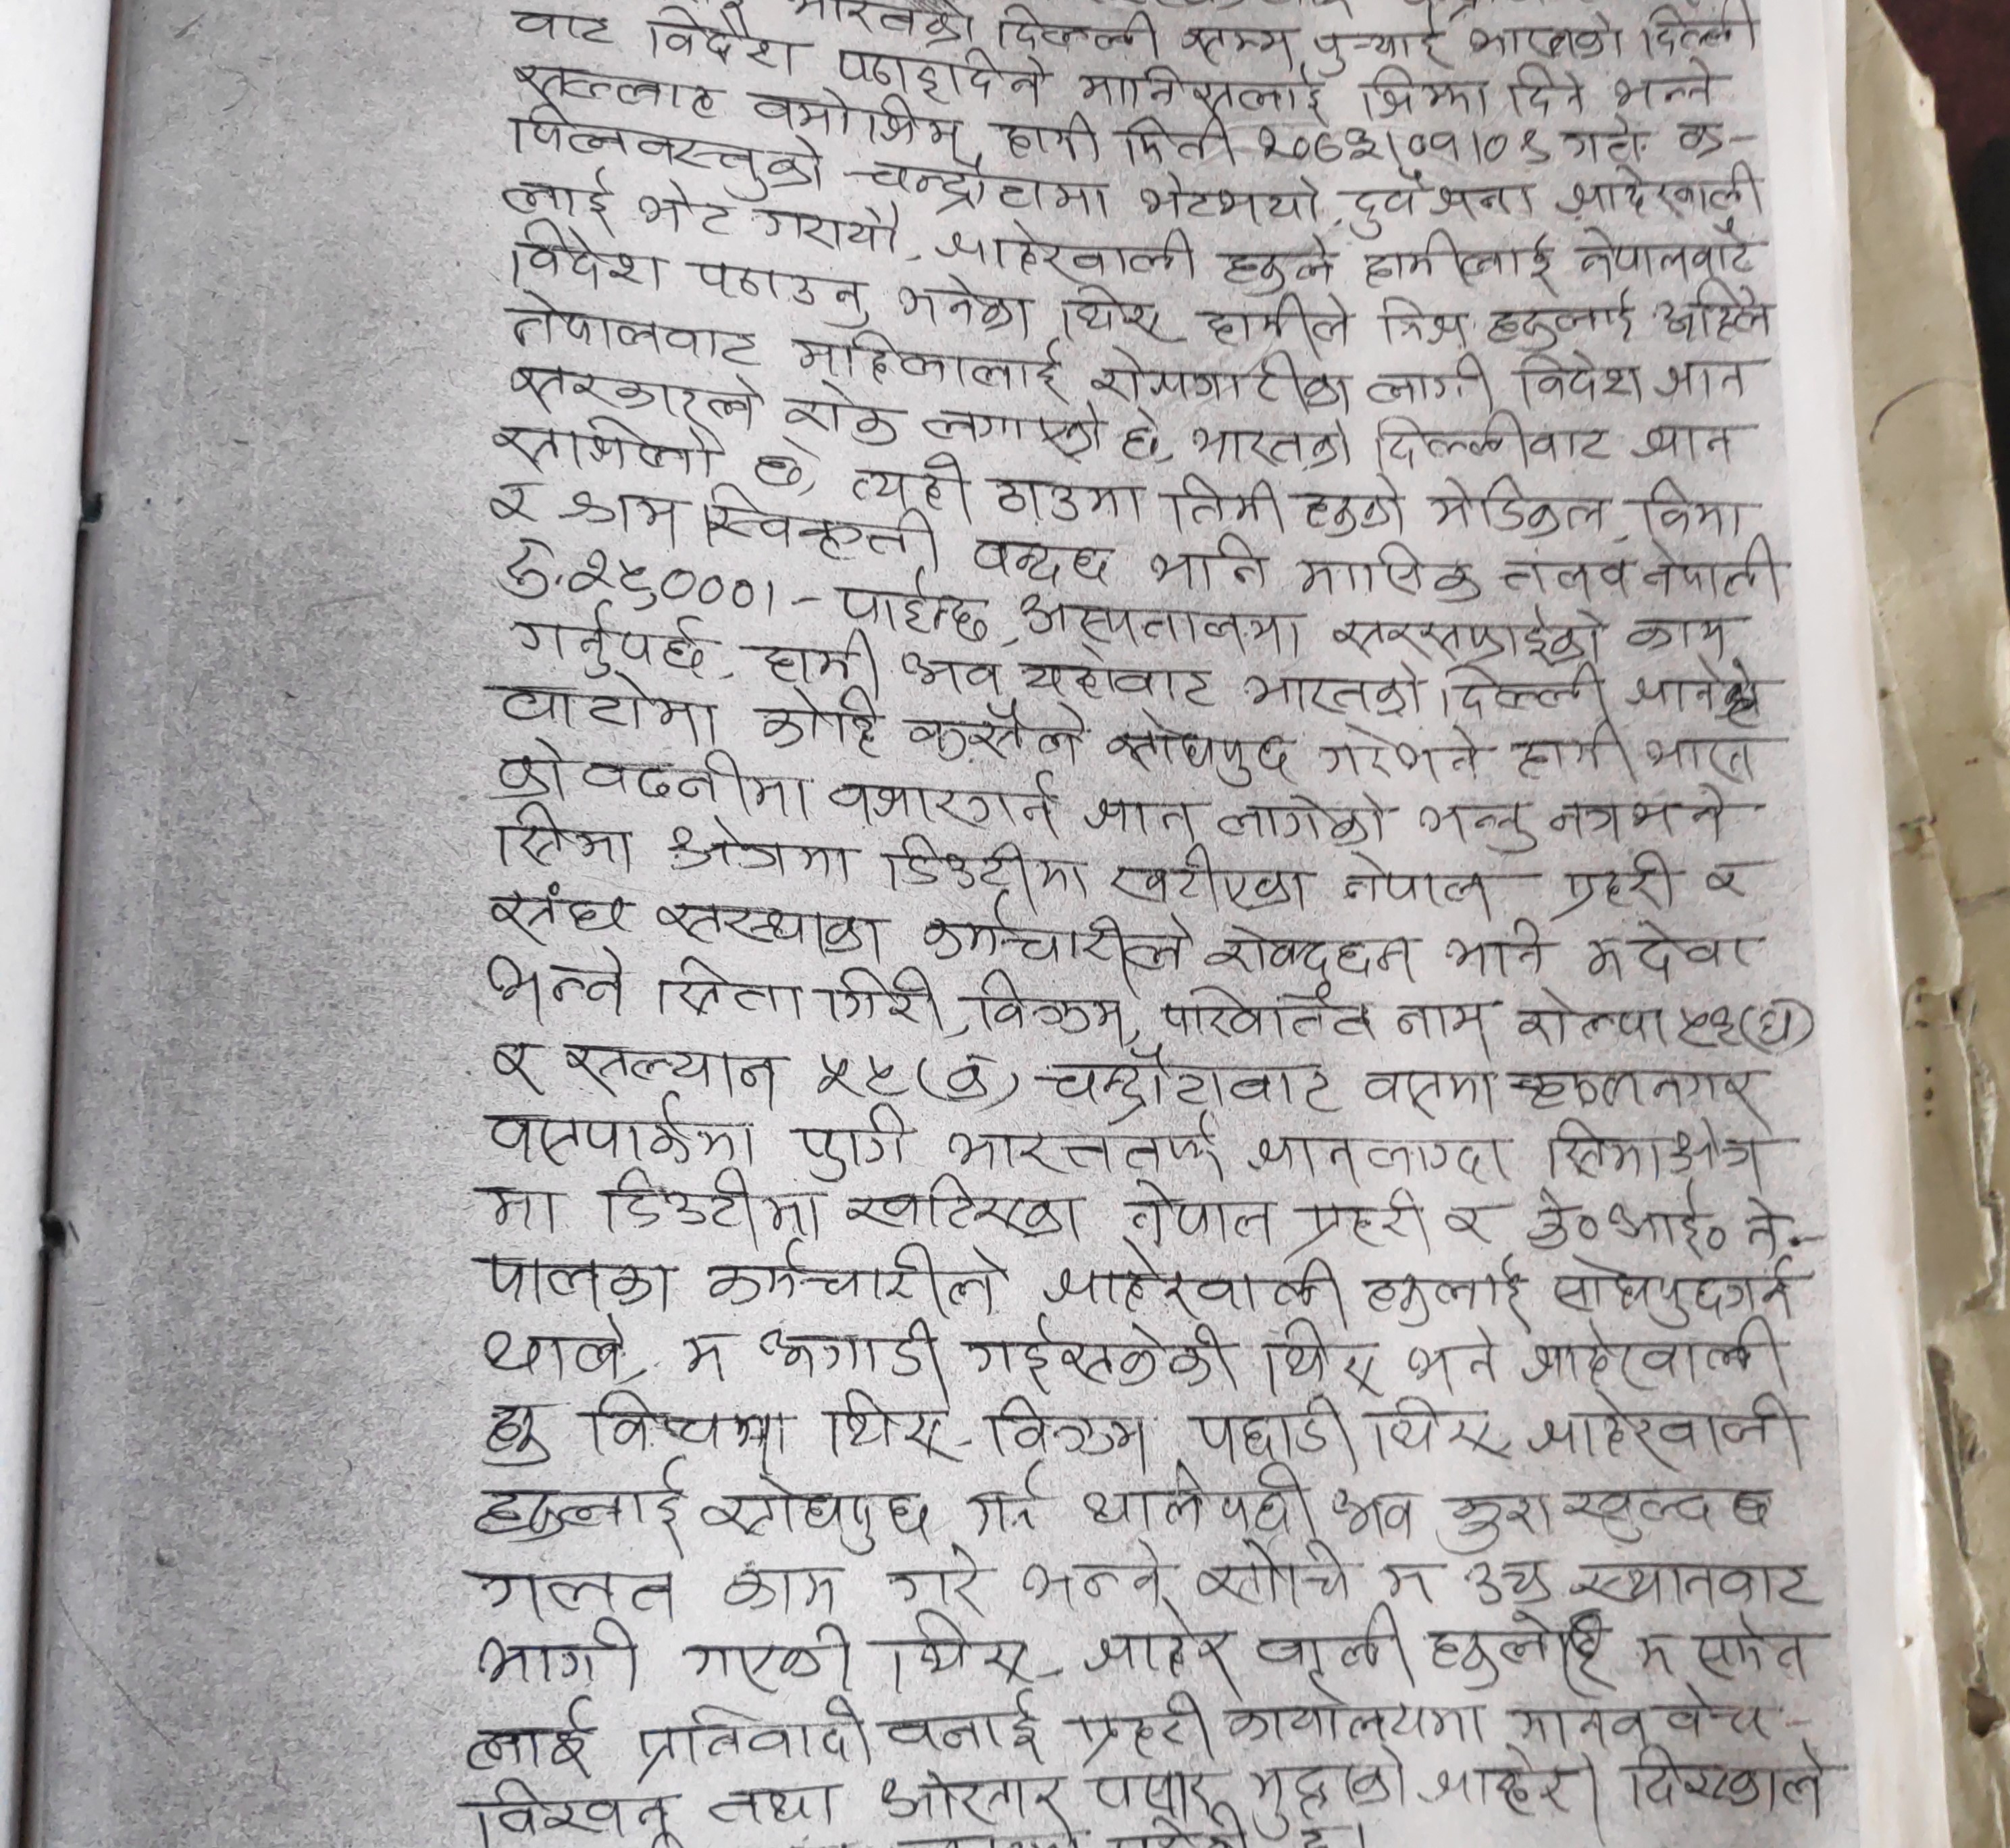 भारतको दिल्ली सम्म पुर्‍याई भारतको दिल्ली
वाट विदेश पठाइदिने मानिसलाई जिम्मा दिने भन्ने
सल्लाह वमोजिम हामी मिति गते क-
पिलवस्तुको चन्द्रौटामा भेटभयो, दुवैजना जाहेरवाली
लाई भेट गरायौ, जाहेरवाली हरुले हामीलाई नेपालवाटै
विदेश पठाउनु भनेका थिए हामीले निज हरुलाई अहिले
नेपालवाट महिलालाई रोजगारीका लागी विदेश जान
सरकारले रोक लगाएको छ, भारतको दिल्लीवाट जान
सजिलो छ, त्यही ठाउमा तिमी हरुको मेडिकल, विमा
र श्रम स्विकृती वन्दछ भनि मासिक तलव नेपाली
रु.२५०००।- पाईन्छ, अस्पतालमा सरसफाईको काम
गर्नुपर्छ, हामी अव यहाँवाट भारतको दिल्ली जानेछौ
वाटोमा कोहि कसैले सोधपुछ गरेभने हामी भारत
को वढनीमा वजारगर्न जान लागेको भन्नु नत्रभने
सिमा क्षेत्रमा डिउटीमा खटीएका नेपाल प्रहरी र
संघ सस्थाका कर्मचारीले रोक्दछन भनि म देवा
भन्ने सिता गिरी, विक्रम, परिवर्तित नाम रोल्पा (घ)
र सल्यान ५५(क) चन्द्रौटावाट वसमा कृष्णनगर
वसपार्कमा पुगी भारततर्फ जानलाग्दा सिमाक्षेत्र
मा डिउटीमा खटिएका नेपाल प्रहरी र के०आई० ने-
पालका कर्मचारीले जाहेरवाली हरुलाई सोधपुछगर्न
थाले, म अगाडी गईसकेकी थिए भने जाहेरवाली
हरु विचमा थिए विक्रम पछाडी थिए जाहेरवाली
हरुलाई सोधपुछ गर्न थालेपछी अव कुरा खुल्दछ
गलत काम गरे भन्ने सोची म उक्त स्थानवाट
भागी गएकी थिए जाहेर वाली हरुले म समेत
लाई प्रतिवादी वनाई प्रहरी कार्यालयमा मानव वेच-
विखन तथा ओसार पसार मुद्दाको जाहेरी दिएकाले